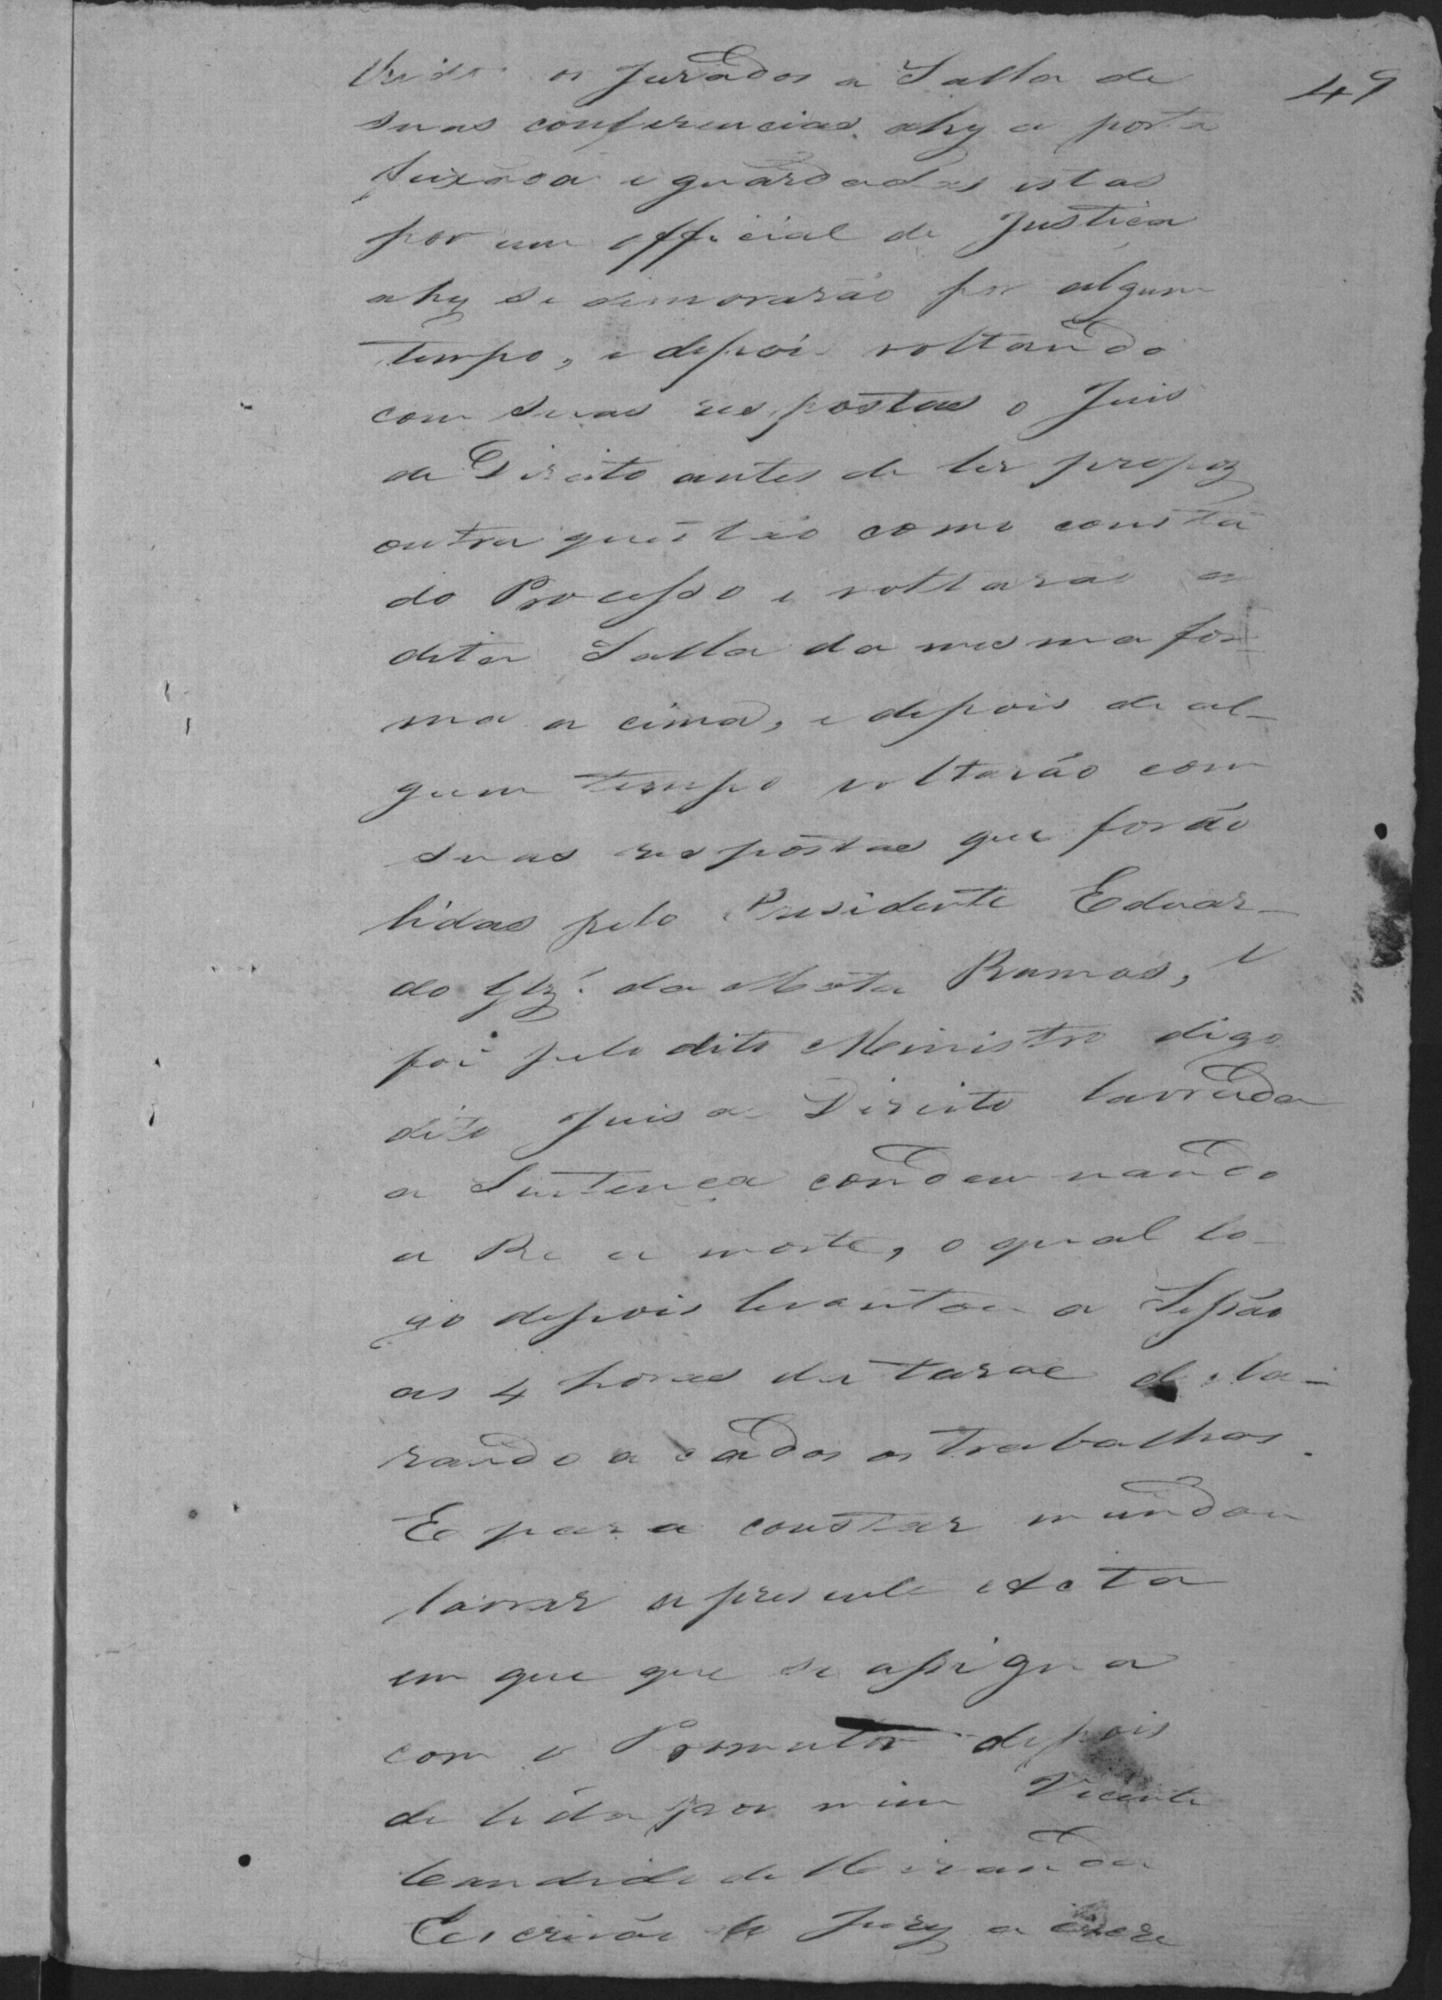 49
os Jurados a Salla de
suas conferencias ahy a porta
feixada e guardadas estas
por um official de Justiça
ahy se demorarão por algum
tempo, e depois voltando
com suas respostas o Juis
de Direito antes de ler propoz
outra questão como consta
do Processo e voltarão a
dita Salla da mesma for
ma a cima, e depois de al-
gum tempo voltarão com
suas respostas que forão
lidas pelo Presidente Eduar-
do Glz' da Motta Ramos, e
foi pelo dito Ministro digo
dito Juis de Direito lavrada
a Sentença condemnando
a Re a morte, o qual lo-
go depois levantou a Sessão
as 4 horas da tarde decla-
rando acabados os trabalhos.
E para constar mandou
lavrar a presente Acta
em que que se assigna
com o Promutor depois
de lida por mim Vicente
Candido de Miranda
Escrivão do Jury a escre